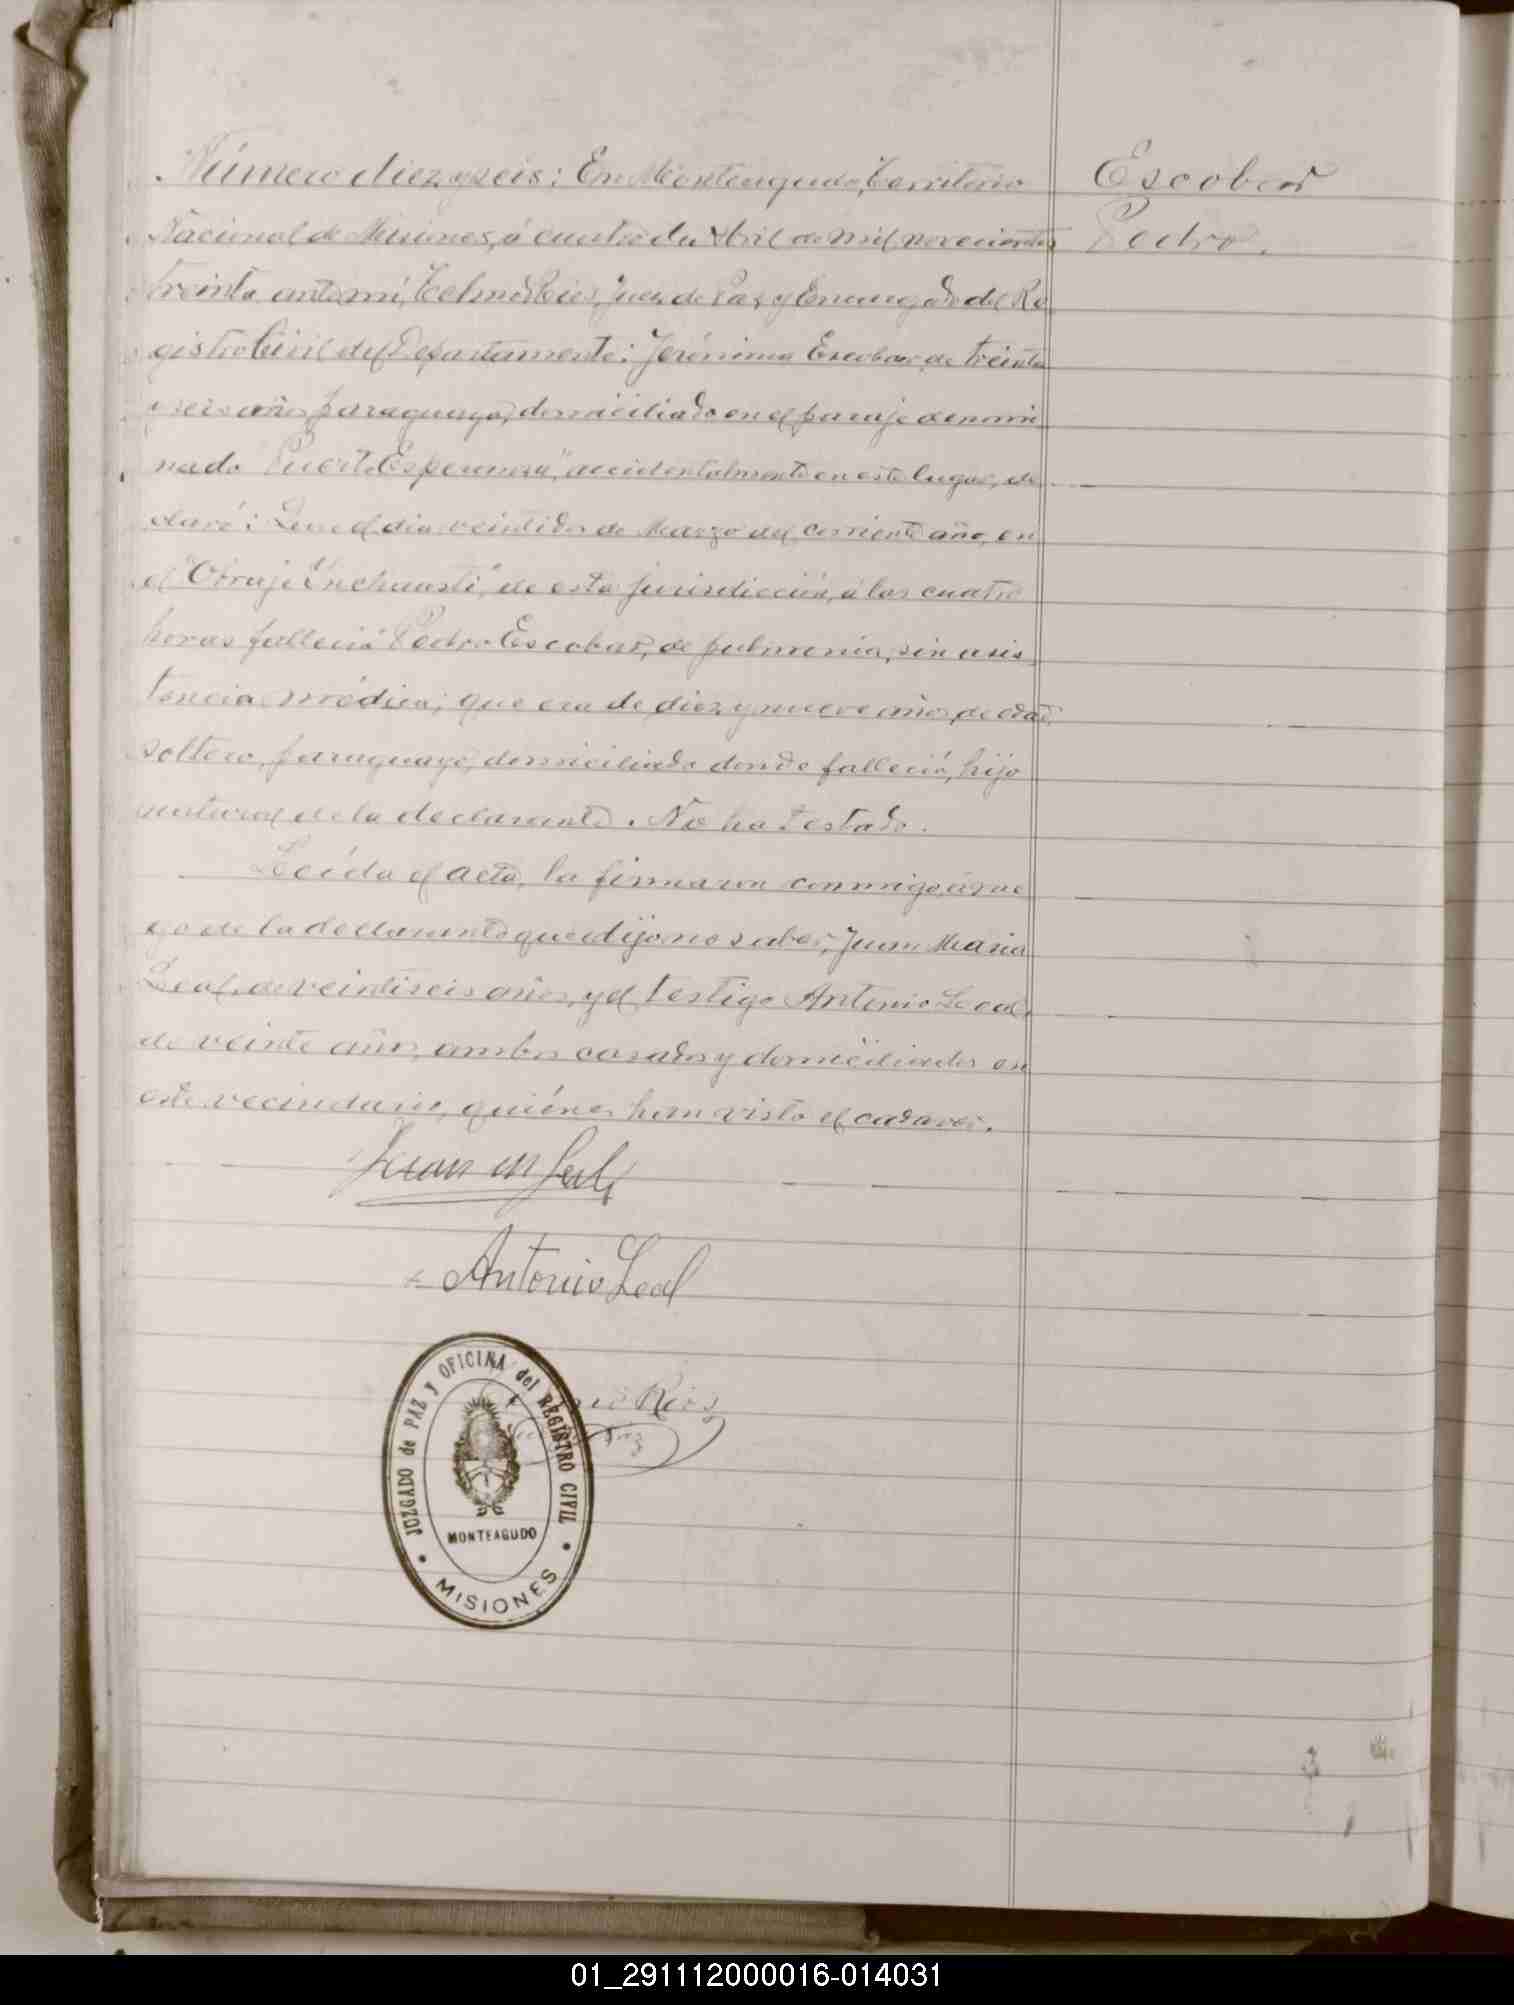 Número diez y seis: En Monteagudo, Territorio
Nacional de Misiones, á cuatro de Abril de mil novecientos
treinta ante mí, Telmo Rios, Juez de Paz y Encargado del Re
gistro Civil del Departamento: Jerónima Escobar, de treinta
y seis años paraguaya, domiciliada en el paraje denomi
nado "Puerto Esperanza", accidentalmente en este lugar, de
claró: Que el dia veintidos de Marzo del corriente año, en
el "Obraje Inchausti", de esta jurisdicción, á las cuatro
horas falleció Pedro Escobar, de pulmonía, sin asis
tencia médica; que era de diez y nueve años de edad,
soltero, paraguayo, domiciliado donde falleció, hijo
natural de la declarante. No ha testado.
Leída el acta, la firmaron conmigo, á rue
go de la declarante que dijo no saber, Juan Maria
Leal, de veintiseis años, y el testigo Antonio Leal,
de veinte años, ambos casados y domiciliados en
este vecindario, quiénes han visto el cadaver.
Juan M Leal
Antonio Leal
Rios
Paz
JUZGADO de PAZ y OFICINA del REGISTRO CIVIL
MONTEAGUDO
MISIONES
Escobar
Pedro.
01_291112000016-014031